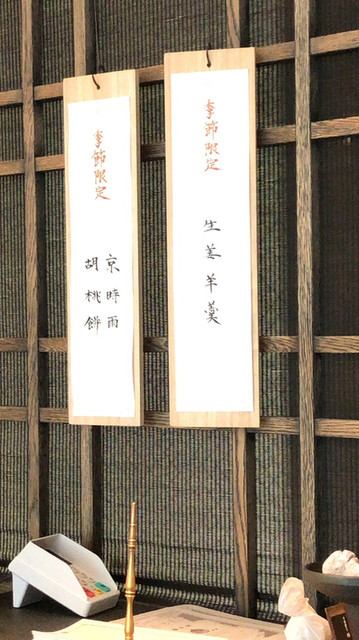 季節限定
生姜羊羹
季節限定
京時雨
胡桃餅